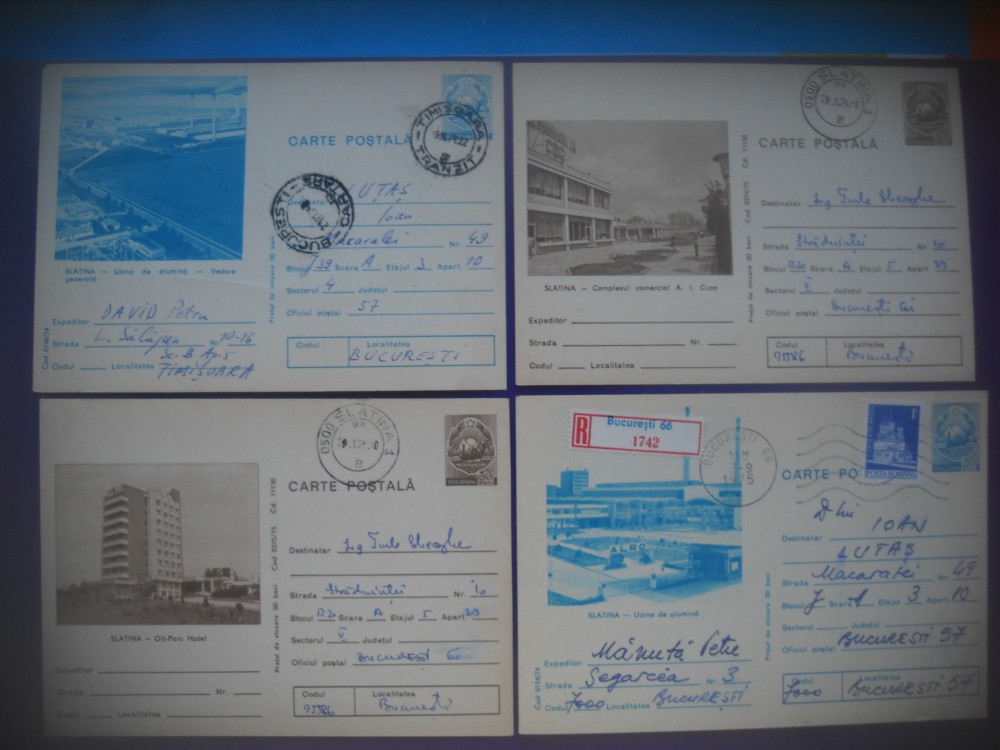 CARTE POȘTALĂ
TIMIȘOARA
TRANZIT
BUCUREȘTI
CARTARE
Destinatar LUȚAȘ
Ioan
Macaralei Nr. 49
Blocul J39 Scara A Etajul 3 Apart. 10
Sectorul 4 Județul
Oficiul poștal 57
Codul Localitatea
BUCUREȘTI
SLATINA — Uzina de alumină — Vedere
generală
DAVID Petru
Expeditor
Strada L. Sălăjan Nr. 10-16
Sc. B Ap. 5
Codul Localitatea TIMIȘOARA
Cod 0149/74
Prețul de vînzare 30 bani
0500 SLATINA
CARTE POȘTALĂ
COS
SLATINA — Complexul comercial A. I. Cuza
Expeditor
Strada Nr.
Codul Localitatea
Prețul de vînzare 30 bani
Cod 0274/75
Cd. 11130
Destinatar Ing Gheorghe
Strada Străduinței Nr. 10
Blocul R20 Scara A Etajul 5 Apart.
Sectorul V Județul
Oficiul poștal București
Codul Localitatea
75586 București
0500 SLATINA
CARTE POȘTALĂ
POSTA ROMANA 30
SLATINA — Olt-Parc Hotel
Expeditor
Strada Nr.
Codul Localitatea
Prețul de vînzare 30 bani
Cod 0275/75
Cd. 11130
Destinatar Ing Gheorghe
Strada Străduinței Nr. 10
Blocul R20 Scara A Etajul 5 Apart.
Sectorul V Județul
Oficiul poștal București
Codul Localitatea
75586 București
R București 66
1742
BUCUREȘTI 66
CARTE PO
POSTA ROMANA
ALRO
SLATINA — Uzina de alumină
Expeditor Mănuță Petre
Strada Segarcea Nr. 3
Codul 7000 Localitatea BUCUREȘTI
Cod 0154/74
Prețul de vînzare 30 bani
D-lui IOAN
Destinatar LUTAȘ
Strada Macaralei Nr. 49
Blocul J Scara A Etajul 3 Apart. 10
Sectorul Județul
Oficiul poștal BUCUREȘTI 57
Codul Localitatea
7000 BUCUREȘTI 57